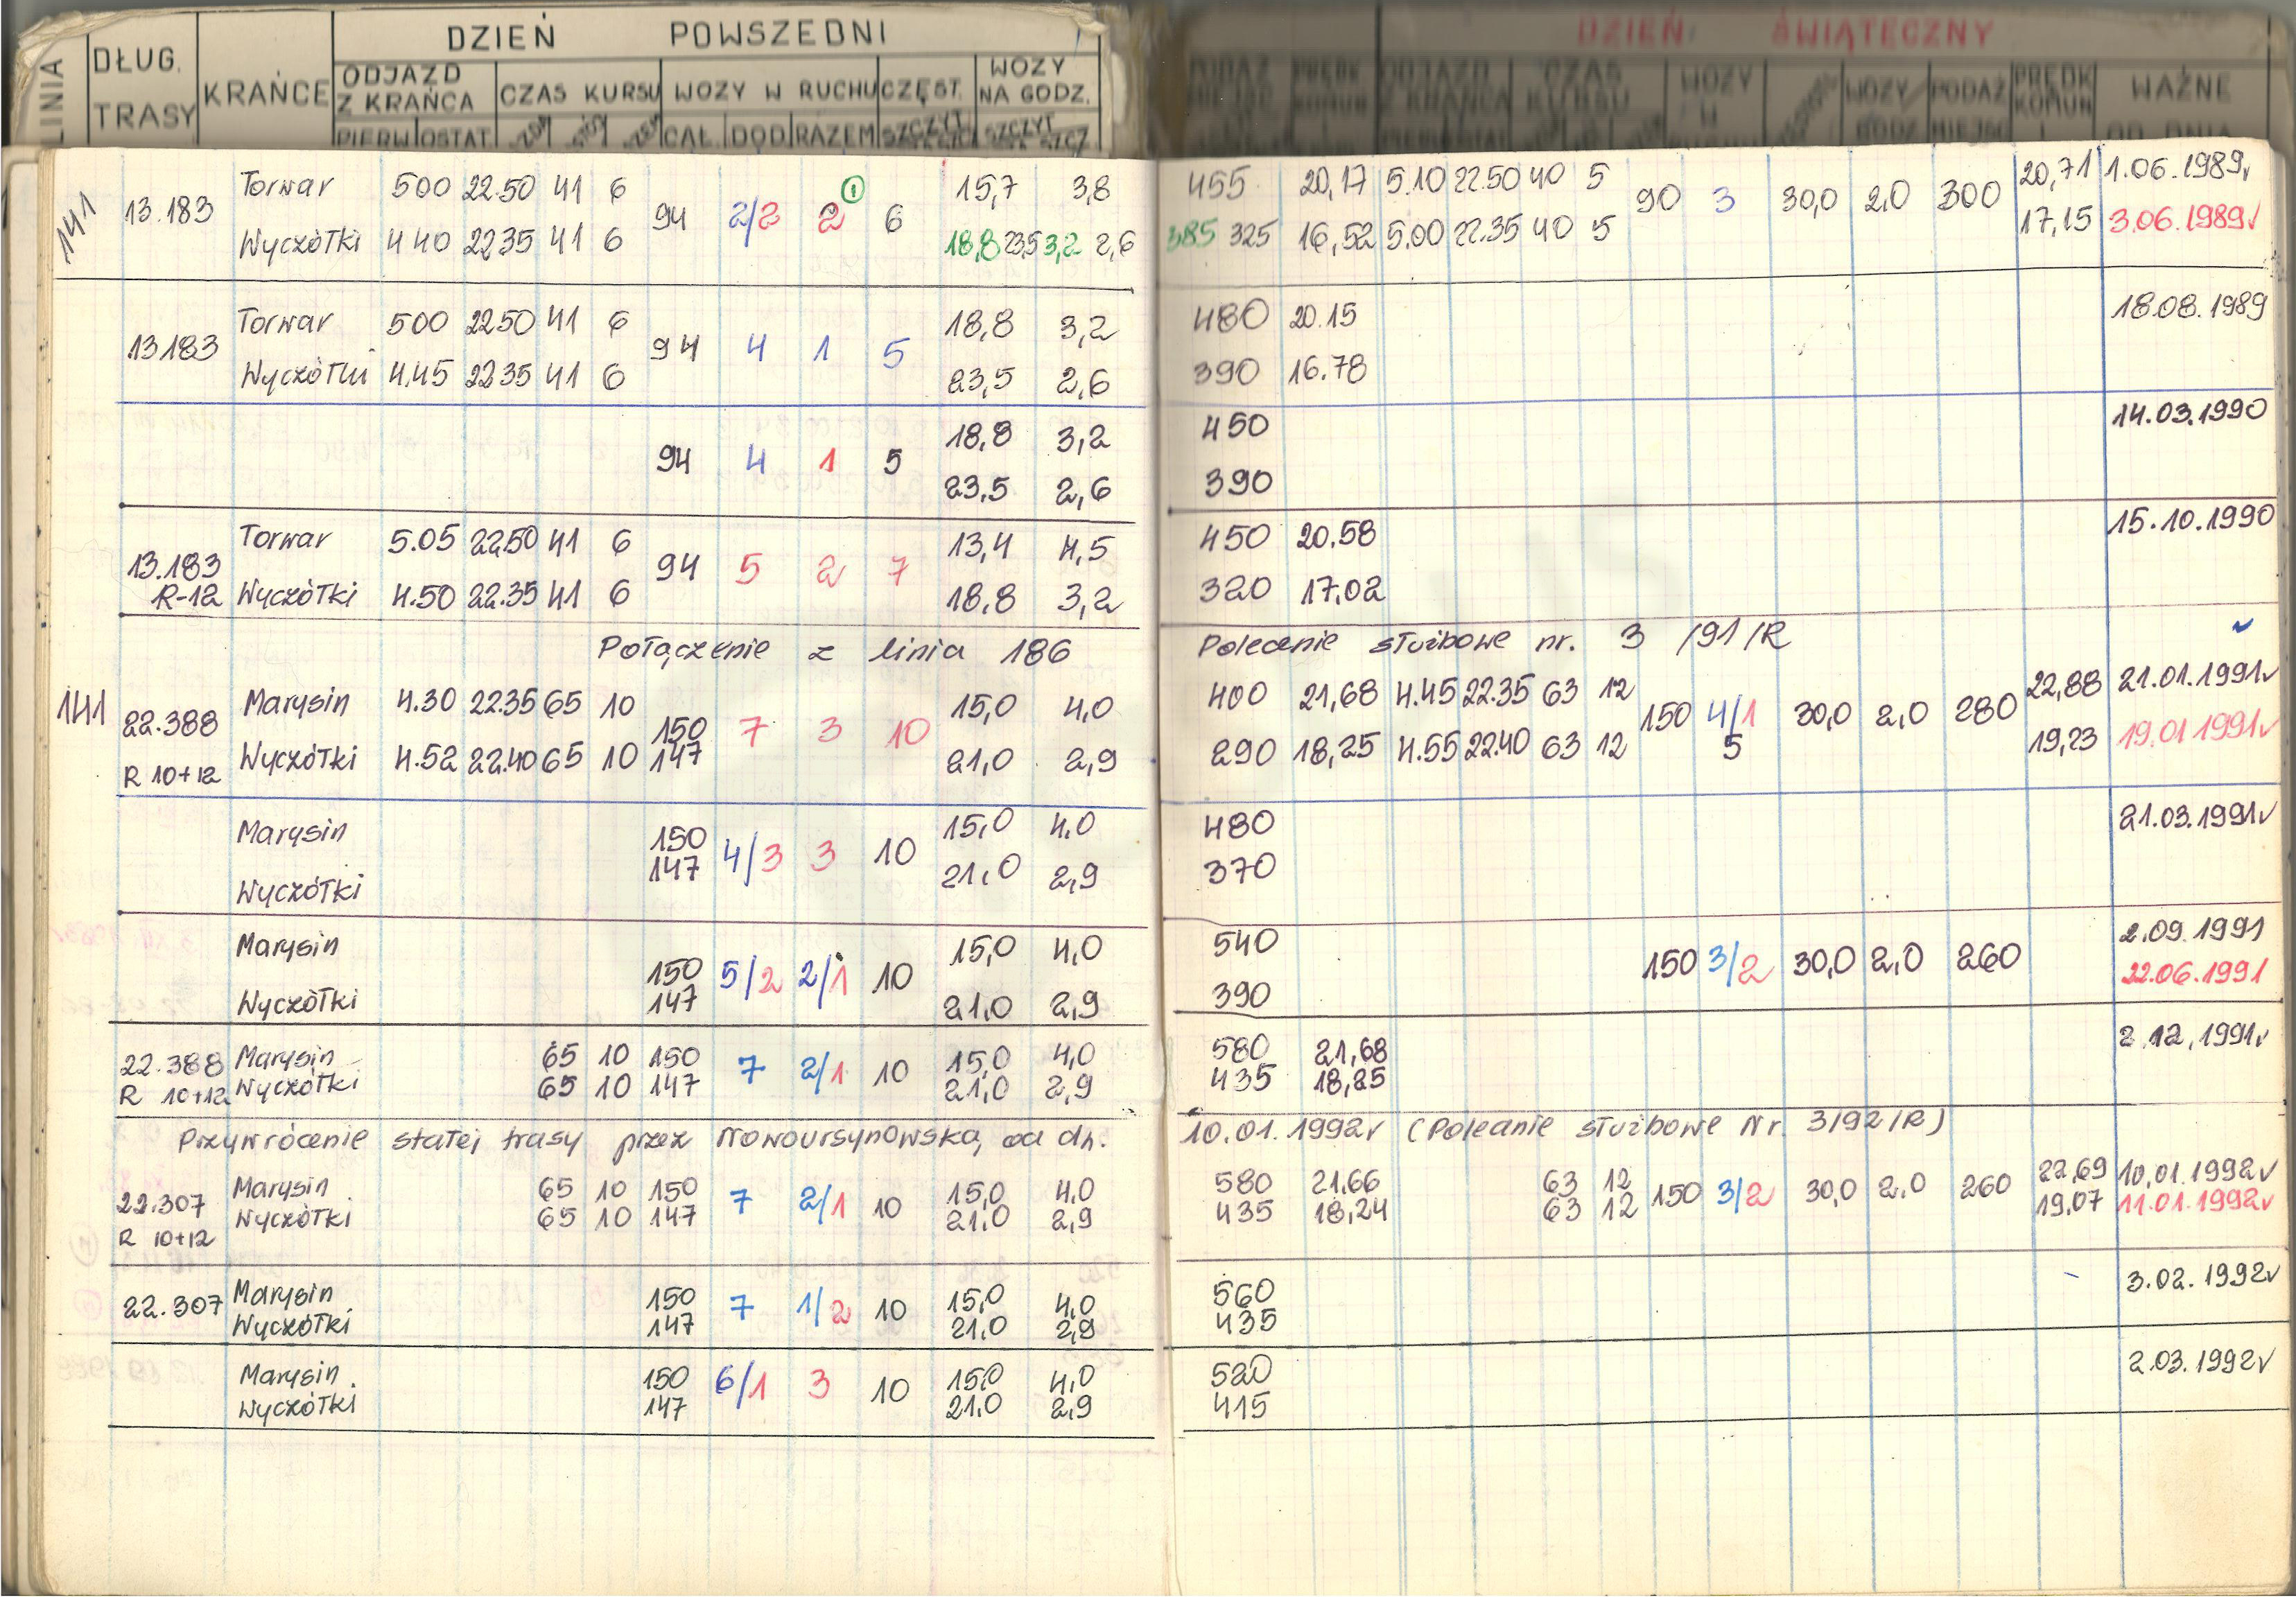 DZIEŃ POWSZEDNI DZIEŃ ŚWIĄTECZNY
LINIA DŁUG. TRASY KRAŃCE ODJAZD Z KRAŃCA CZAS KURSU WOZY W RUCHU CZĘST. WOZY NA GODZ. WOZY W WOZY/ PODAŻ PRĘDK KOMUN WAŻNE OD DNIA
PIERW OSTAT. CAŁ. DOD RAZEM SZCZYT SZCZYT
141 13.183 Torwar 500 22.50 41 6 94 2/2 2 ① 6 15,7 3,8 455 20,17 5.10 22.50 40 5 90 3 30,0 2,0 300 20,71 1.06.1989v
Wyczółki 440 2235 41 6 18,8 23,5 3,2 2,6 385 325 16,52 5.00 22.35 40 5 17,15 3.06.1989v
13183 Torwar 500 2250 41 6 94 4 1 5 18,8 3,2 480 20.15 18.08.1989
Wyczółki 4.45 2235 41 6 23,5 2,6 390 16.78
94 4 1 5 18,8 3,2 450 14.03.1990
23,5 2,6 390
13.183 Torwar 5.05 22.50 41 6 94 5 2 7 13,4 4,5 450 20,58 15.10.1990
R-12 Wyczółki 4.50 22.35 41 6 18,8 3,2 320 17,02
Połączenie z linia 186 Polecenie służbowe nr. 3 /91/R
141 22.388 Marysin 4.30 22.35 65 10 150 7 3 10 15,0 4,0 400 21,68 4.45 22.35 63 12 150 4/1 30,0 2,0 280 22,88 21.01.1991v
R 10+12 Wyczółki 4.52 22.40 65 10 147 21,0 2,9 290 18,25 4.55 22.40 63 12 5 19,23 19.01 1991v
Marysin 150 4/3 3 10 15,0 4,0 480 21.03.1991v
Wyczółki 147 21,0 2,9 370
Marysin 150 5/2 2/1 10 15,0 4,0 540 150 3/2 30,0 2,0 260 2.09.1991
Wyczółki 147 21,0 2,9 390 22.06.1991
22.388 Marysin 65 10 150 7 2/1 10 15,0 4,0 580 21,68 2.12.1991v
R 10+12 Wyczółki 65 10 147 21,0 2,9 435 18,25
Przywrócenie stałej trasy przez Nowoursynowską, od dn. 10.01.1992v (Poleanie służbowe Nr. 3/92/R)
22.307 Marysin 65 10 150 7 2/1 10 15,0 4.0 580 21,66 63 12 150 3/2 30,0 2,0 260 22,69 10,01.1992v
R 10+12 Wyczółki 65 10 147 21,0 2,9 435 18,24 63 12 19,07 11.01.1992v
22.307 Marysin 150 7 1/2 10 15,0 4,0 560 3.02.1992v
Wyczółki 147 21,0 2,9 435
Marysin 150 6/1 3 10 15,0 4,0 520 2.03.1992v
Wyczółki 147 21.0 2,9 415